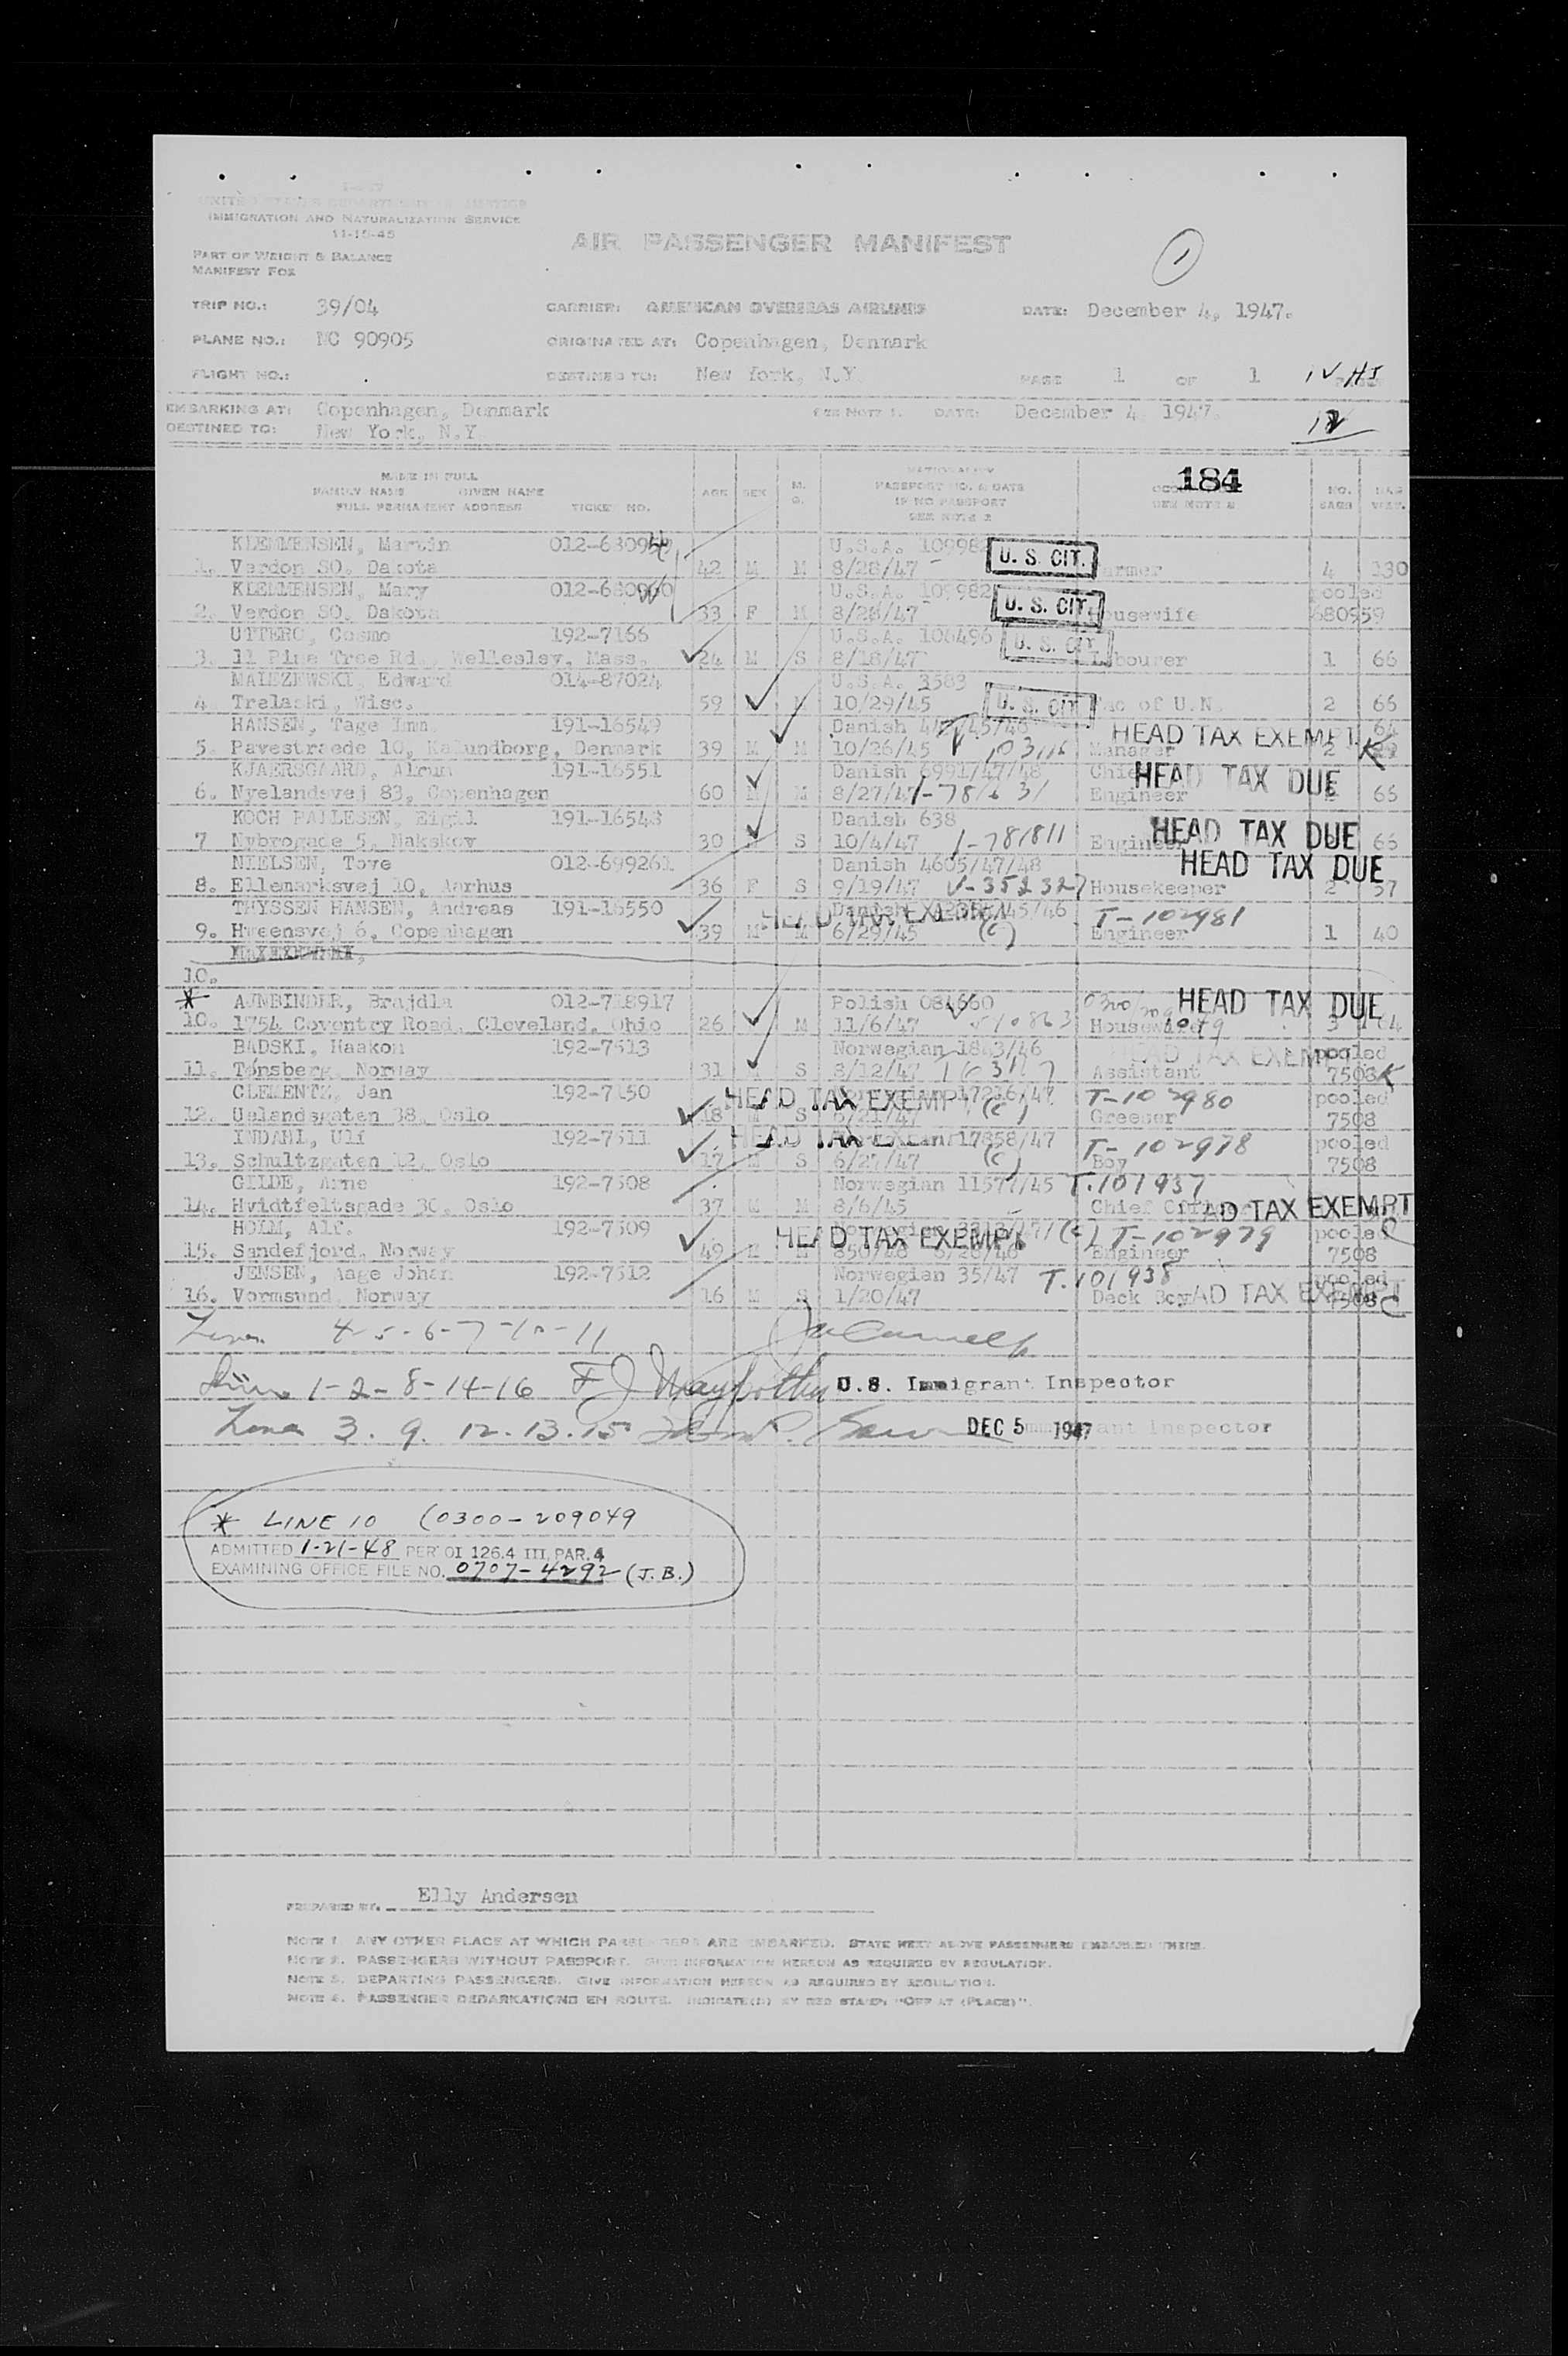 UNITED STATES DEPARTMENT OF JUSTICE
IMMIGRATION AND NATURALIZATION SERVICE
11-10-45
PART OF WEIGHT & BALANCE
MANIFEST FOR
AIR PASSENGER MANIFEST
1
TRIP NO.: 39/04 CARRIER: AMERICAN OVERSEAS AIRLINES DATE: December 4, 1947.
PLANE NO.: NC 90905 ORIGINATED AT: Copenhagen, Denmark
FLIGHT NO.: DESTINED TO: New York, N.Y. PAGE 1 OF 1
EMBARKING AT: Copenhagen, Denmark SEE NOTE 1. DATE: December 4 1947.
DESTINED TO: New York, N.Y.
184
NAME IN FULL
FAMILY NAME GIVEN NAME
FULL PERMANENT ADDRESS TICKET NO. AGE SEX M. S. NATIONALITY PASSPORT NO. & DATE IF NO PASSPORT SEE NOTE 2 SEE NOTE 2 NO. BAGS BAG WGT.
KLEMMENSEN, Martin 012-680959 U.S.A. U. S. CIT.
1. Verdon SO. Dakota 42 M M 8/28/47 4 130
KLEMMENSEN, Mary 012-680960 U.S.A. 109982 U. S. CIT. pooled
2. Verdon SO. Dakota 33 F M 8/28/47 Housewife 680959
UTTERO, Cosmo 192-7166 U.S.A. 106496 U. S. CIT.
3. 11 Pine Tree Rd., Wellesley, Mass. 24 M S 8/18/47 Labourer 1 66
MALEZEWSKI, Edward 014-87024 U.S.A. 3583
4. Wisc. 59 10/29/45 U. S. CIT. of U.N. 2 66
HANSEN, Tage 191-16549 Danish HEAD TAX EXEMPT
5. Pavestraede 10, Kalundborg, Denmark 39 M M 10/26/45 Manager 2 K
KJAERSGAARD, 191-16551 Danish 6991/47/48 Chief HEAD TAX DUE
6. Nyelandsvej 83, Copenhagen 60 M M 8/27/47 Engineer 66
KOCH PALLESEN, Eigil 191-16548 Danish 638
7 Nybrogade 5, Nakskov 30 S 10/4/47 1-781811 Engineer HEAD TAX DUE 66
NIELSEN, Tove 012-699261 Danish 4605/47/48 HEAD TAX DUE
8. Ellemarksvej 10, Aarhus 36 F S 9/19/47 V-352327 Housekeeper 2 57
THYSSEN HANSEN, Andreas 191-16550 HEAD TAX EXEMPT Danish T-102981
9. Hveensvej 6, Copenhagen 39 M M 6/29/45 (c) Engineer 1 40
10.
* AJMBINDER, Brajdla 012-718917 Polish 084660 HEAD TAX DUE
10. 1754 Coventry Road, Cleveland, Ohio 26 M 11/6/47 Housewife 3
BADSKI, Haakon 192-7513 Norwegian 1843/46 HEAD TAX EXEMPT pooled
11. Tønsberg, Norway 31 S 8/12/47 Assistant 7508 K
CLEMENTZ, Jan 192-7150 HEAD TAX EXEMPT (c) T-102980 pooled
12. Uelandsgaten 38, Oslo 18 S Greeser 7508
INDAHL, Ulf 192-7511 HEAD TAX EXEMPT 17858/47 T-102978 pooled
13. Schultzgaten 12, Oslo 17 M S 6/27/47 (c) Boy 7508
GILDE, Arne 192-7508 Norwegian T.101937
14. Hvidtfeltsgade 30, Oslo 37 M M 8/6/45 Chief HEAD TAX EXEMPT
HOLM, Alf. 192-7509 HEAD TAX EXEMPT (c) T-102979 pooled
15. Sandefjord, Norway 49 M M Engineer 7508
JENSEN, Aage Johan 192-7512 Norwegian 35/47 T.101938 pooled
16. Vormsund, Norway 16 M S 1/20/47 Deck Boy HEAD TAX EXEMPT 7508 C
Lines 4-5-6-7-10-11
Lines 1-2-8-14-16 U.S. Immigrant Inspector
Lines 3. 9. 12. 13. 15 DEC 5 1947 Immigrant Inspector
* LINE 10 (0300-209049
ADMITTED 1-21-48 PER OI 126.4 III, PAR. 4
EXAMINING OFFICE FILE NO. 0707-4292 (J.B.)
PREPARED BY: Elly Andersen
NOTE 1. ANY OTHER PLACE AT WHICH PASSENGERS ARE EMBARKED. STATE NEXT ABOVE PASSENGERS EMBARKED THERE.
NOTE 2. PASSENGERS WITHOUT PASSPORT. GIVE INFORMATION HEREON AS REQUIRED BY REGULATION.
NOTE 3. DEPARTING PASSENGERS. GIVE INFORMATION HEREON AS REQUIRED BY REGULATION.
NOTE 4. PASSENGER DEBARKATIONS EN ROUTE. INDICATE(D) BY RED STAMP: "OFF AT (PLACE)".